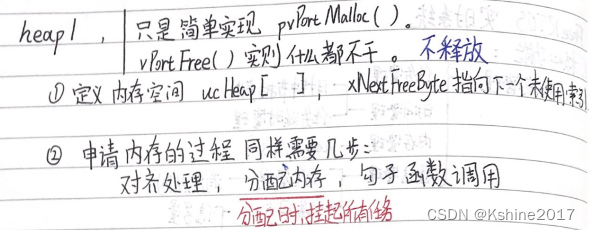 heap1, 只是简单实现 pvPortMalloc()。
vPortFree()实则什么都不干。不释放
① 定义内存空间 ucHeap[ ], xNextFreeByte 指向下一个未使用
② 申请内存的过程 同样需要几步:
对齐处理, 分配内存, 勾子函数调用
分配时,挂起所有任务
CSDN @Kshine2017